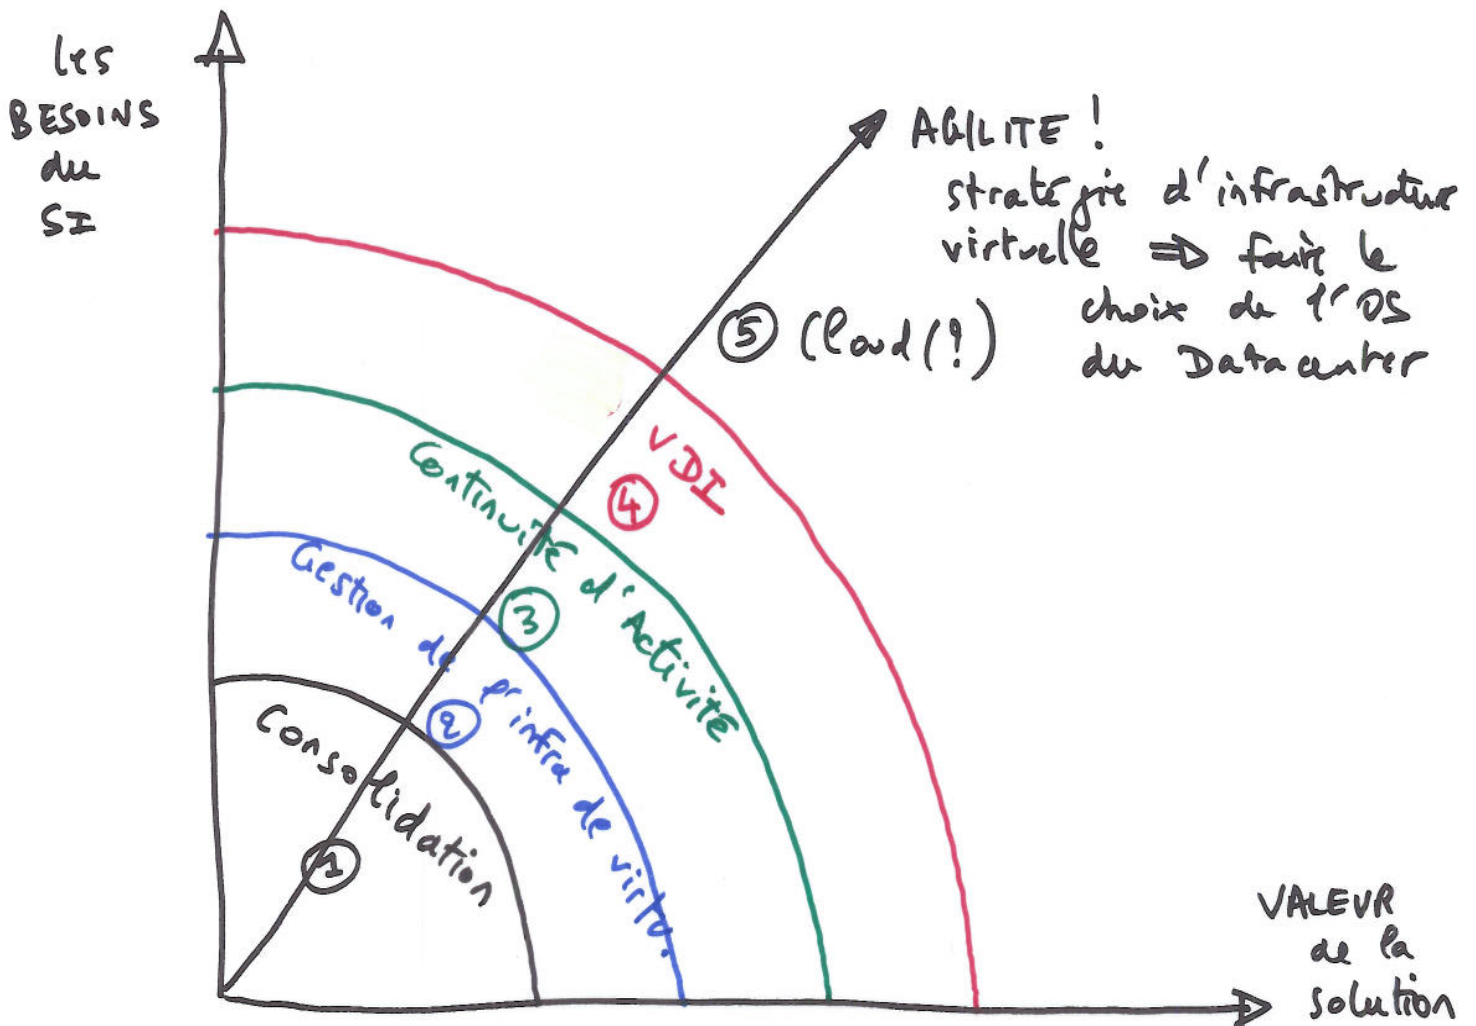 les
BESOINS
du
SI
AGILITE !
stratégie d'infrastructure
virtuelle ⇒ faire le
choix de l'OS
du Datacenter
5 Cloud (!)
VDI
4
Continuité d'Activité
3
Gestion de l'infra de virtu.
2
Consolidation
1
VALEUR
de la
solution